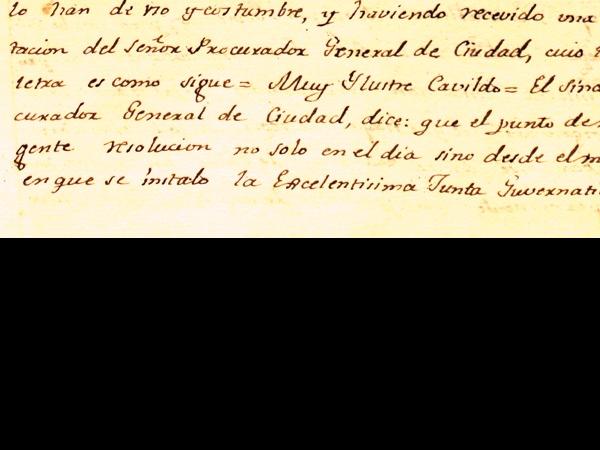 lo han de vso y costumbre, y haviendo recevido una
tacion del señor Procurador General de Ciudad, cuio
letra es como sigue= Muy Ylustre Cavildo= El Sind
curador General de Ciudad, dice: que el punto de
gente resolucion no solo en el dia sino desde el m
en que se instalo la Excelentisima Junta Guvernati